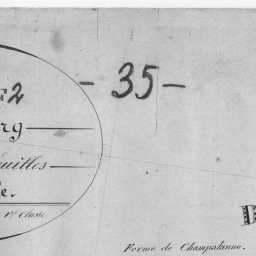 - 35 -
2
rg
euilles
e.
1re Classe
Ferme de Champalanne.